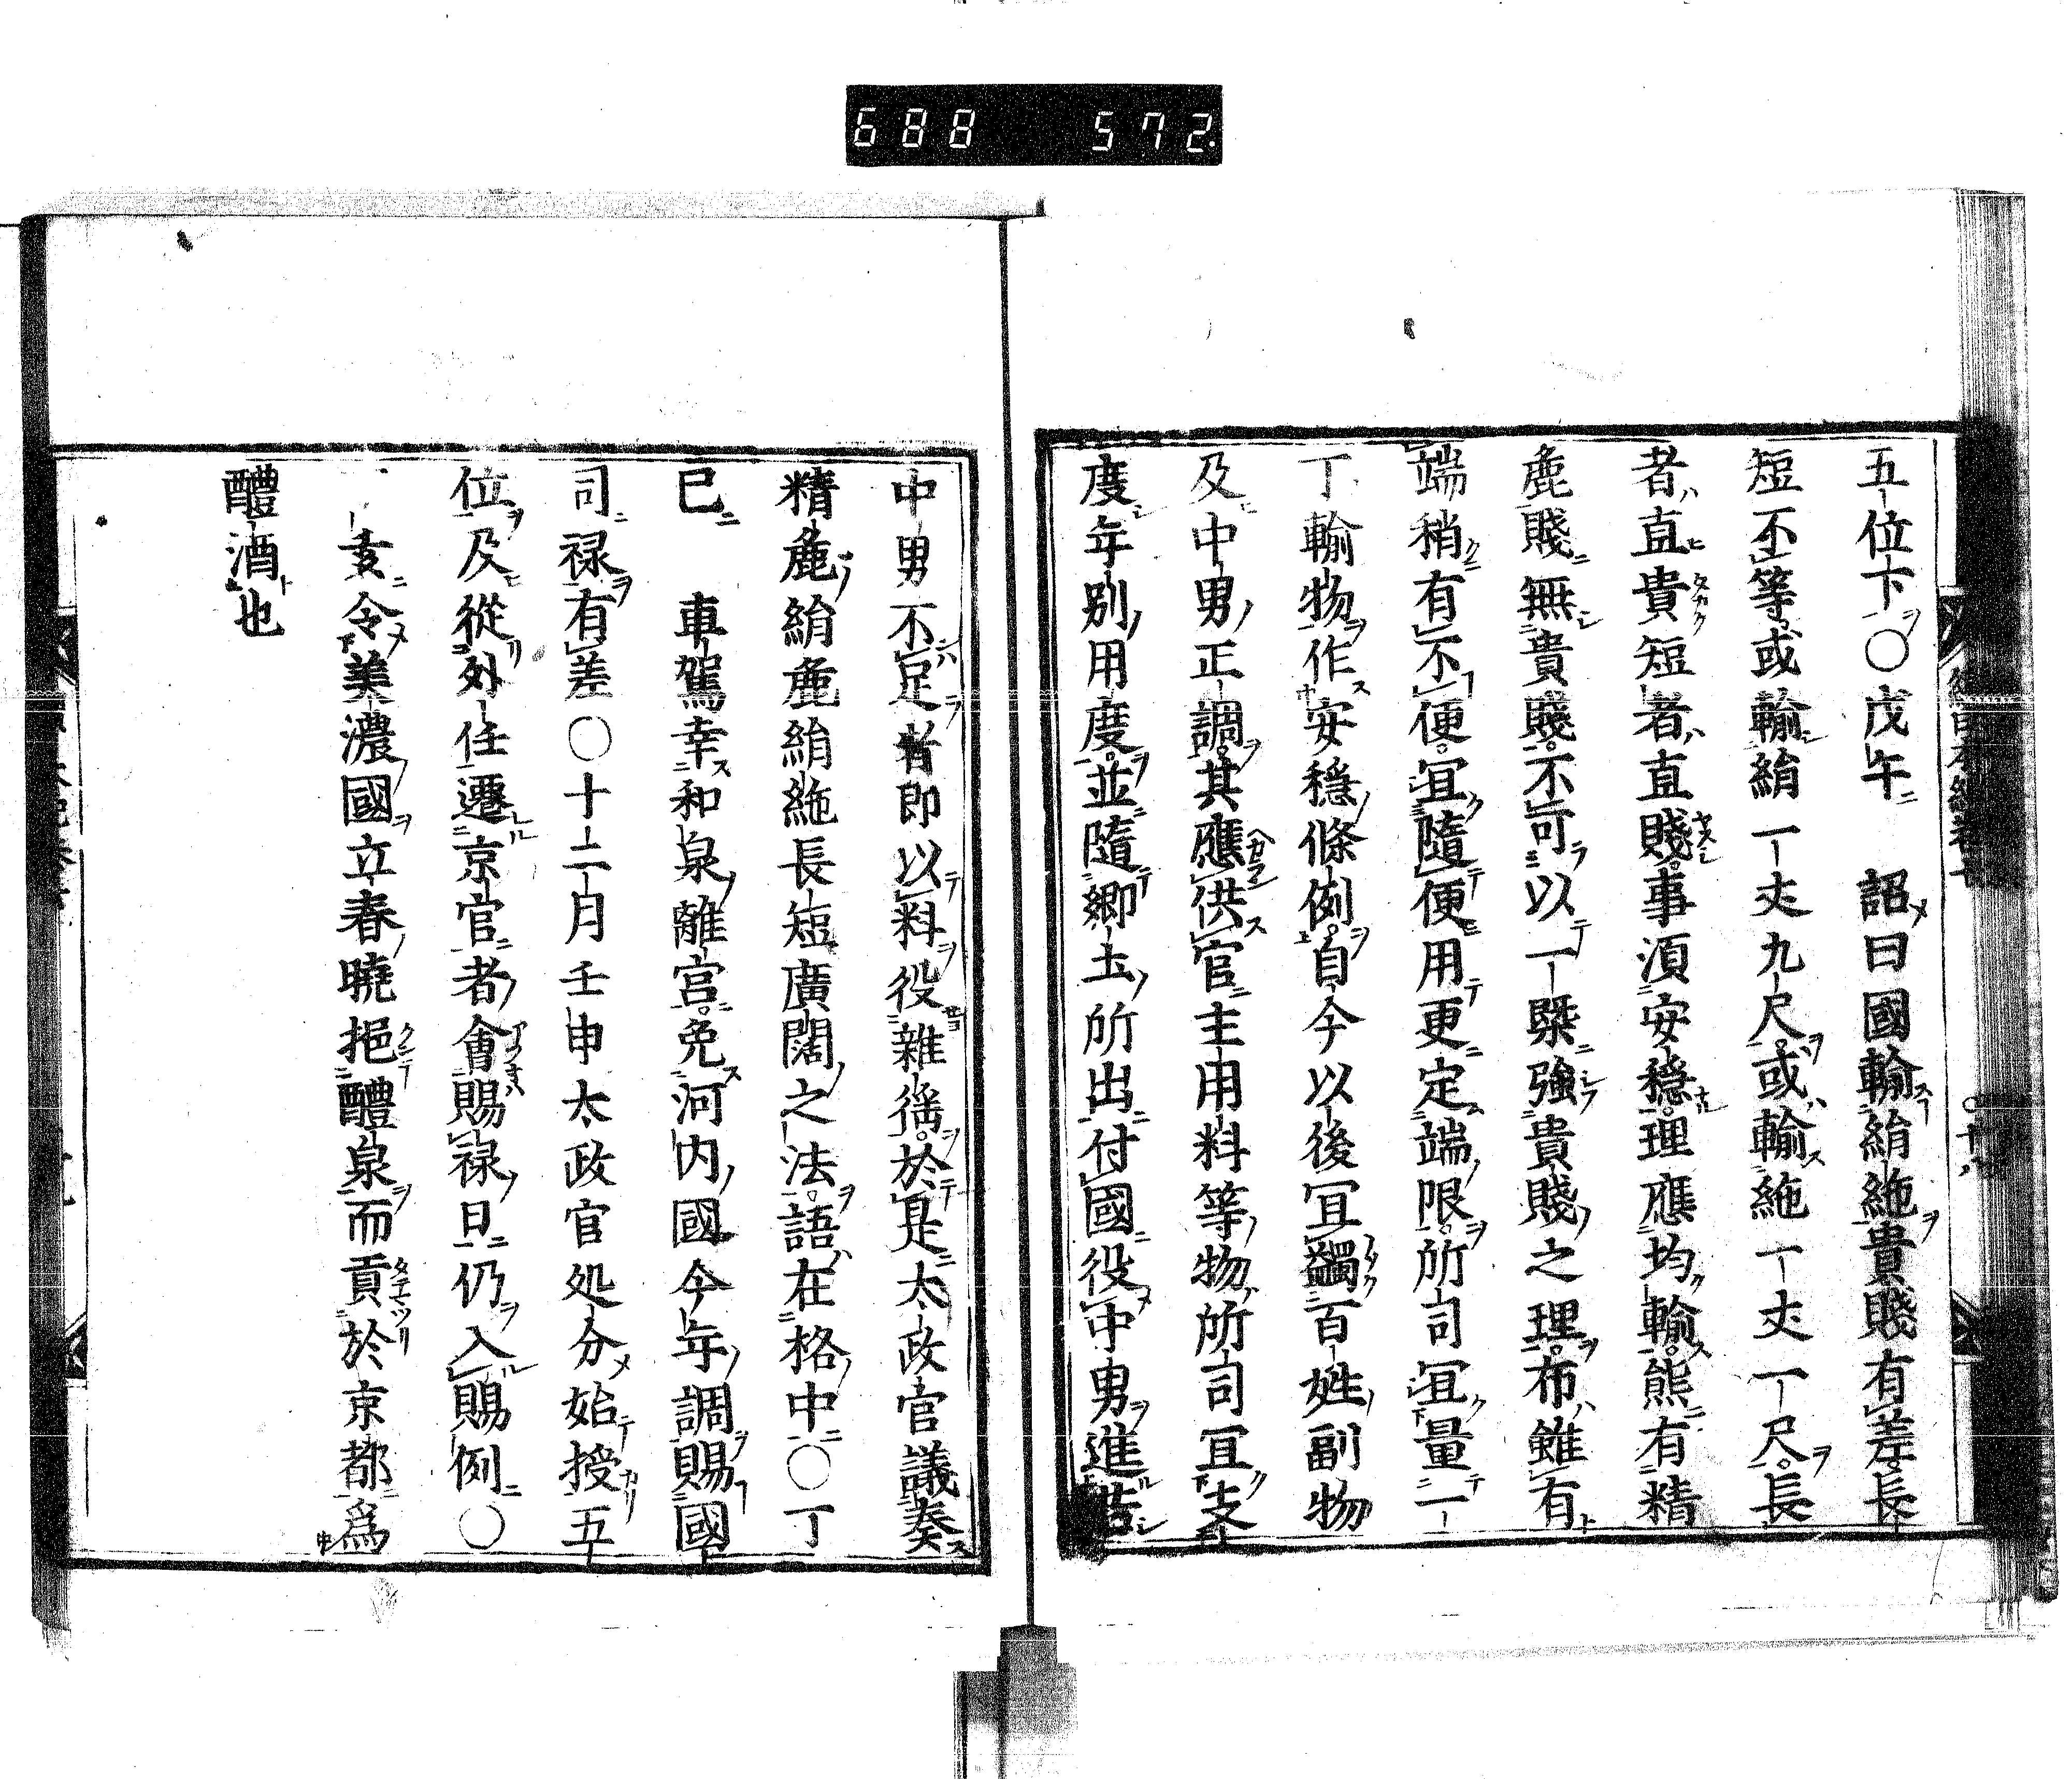 688 572.
五位下○戊午 詔曰國輸絹絁貴賤有差長
短不等或輸絹一丈九尺或輸絁一丈一尺長
者直貴短者直賤事須安穩理應均輸熊有精
麁賤無貴賤不可以一槩強貴賤之理布雖有
端稍有不便宜隨便用更定端限所司宜量一
丁輸物作安穩條例自今以後宜蠲百姓副物
及中男正調其應供官主用料等物所司宜支
度年別用度並隨鄉土所出付國役中男進
中男不足者即以料役雜徭於是太政官議奏
精麁絹麁絹絁長短廣闊之法語在格中○丁
巳 車駕幸和泉離宮免河內國今年調賜國
司祿有差○十二月壬申太政官処分始授五
位及從外任遷京官者會賜祿日仍入賜例○
令美濃國立春曉挹醴泉而貢於京都爲
醴酒也